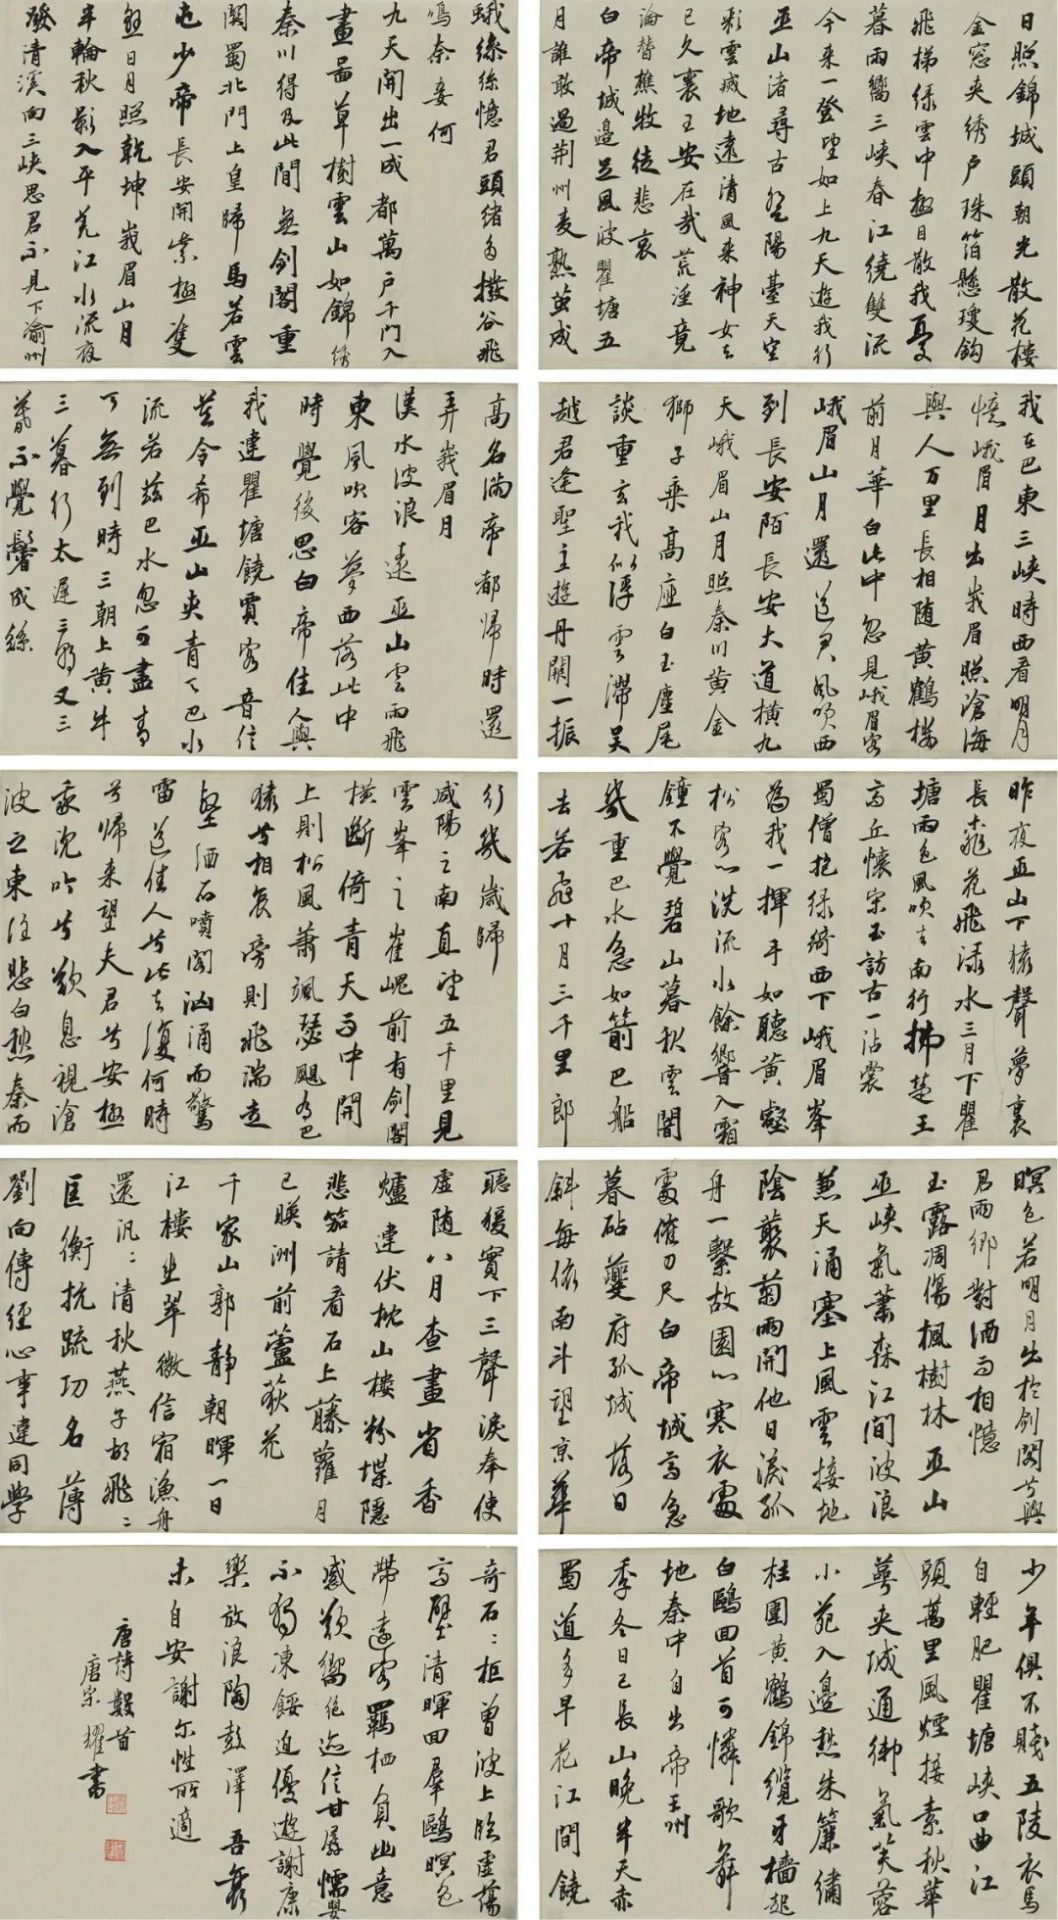 日照錦城頭朝光散花樓
金窓夾綉戶珠箔懸瓊鈎
飛梯绿雲中極目散我憂
暮雨嚮三峽春江繞雙流
今来一登望如上九天遊我行
巫山渚尋古登陽臺天空
彩雲滅地遠清風来神女去
已久襄王安在哉荒淫竟
淪替樵牧徒悲哀
白帝城邊足風波瞿塘五
月誰敢過荆州麦熟茧成
蛾繰絲憶君頭緒多撥谷飛
鳴奈妾何
九天開出一成都萬戶千門入
畫啚草樹雲山如錦綉
秦川得及此間無剑閣重
關蜀北門上皇歸馬若雲
屯少帝長安開紫極雙
懸日月照乾坤峩眉山月
半輪秋影入平羌江水流夜
發清溪向三峽思君不見下渝州
我在巴東三峽時西看明月
憶峨眉月出峩眉照滄海
與人万里長相随黄鶴楼
前月華白此中忽見峨眉客
峨眉山月還送君風吹西
到長安陌長安大道橫九
天峨眉山月照秦川黄金
獅子乘高座白玉麈尾
談重玄我似浮雲滯吴
越君逢聖主遊丹闕一振
高名滿帝都歸時還
弄峩眉月
漢水波浪遠巫山雲雨飛
東風吹客夢西落此中
時覺後思白帝佳人與
我違瞿塘饒賈客音信
莫令希巫山夾青天巴水
流若兹巴水忽可盡青
天無到時三朝上黄牛
三暮行太遲三朝又三
暮不覺鬢成絲
昨夜巫山下猿聲夢裏
長桃花飛渌水三月下瞿
塘雨色風吹去南行拂楚王
高丘懷宋玉訪古一沾裳
蜀僧抱绿綺西下峨眉峯
為我一揮手如聽萬壑
松客心洗流水餘響入霜
鐘不覺碧山暮秋雲闇
幾重巴水急如箭巴船
去若飛十月三千里郎
行幾歲歸
咸陽之南直望五千里見
雲峯之崔嵬前有剑閣
横斷倚青天而中開
上則松風蕭颯瑟颶有巴
猿兮相哀旁則飛湍走
壑洒石噴閣汹涌而驚
雷送佳人兮此去復何時
兮歸来望夫君兮安極
我沈吟兮歎息視滄
波之東注悲白愁秦而
暝色若明月出於剑閣兮與
君两鄉對酒而相憶
玉露凋傷楓樹林巫山
巫峽氣蕭森江間波浪
兼天涌塞上風雲接地
陰叢菊两開他日淚孤
舟一繫故園心寒衣處
處催刀尺白帝城高急
暮砧夔府孤城落日
斜每依南斗望京華
聽猨實下三聲淚奉使
虛随八月查畫省香
爐違伏枕山樓粉堞隱
悲笳請看石上藤蘿月
已映洲前蘆荻花
千家山郭静朝暉一日
江樓坐翠微信宿漁舟
還汎〻清秋燕子故飛〻
匡衡抗疏功名薄
劉向傳經心事違同學
少年俱不賤五陵衣馬
自輕肥瞿塘峽口曲江
頭萬里風煙接素秋華
萼夾城通御氣芙蓉
小苑入邊愁朱簾繡
柱圍黄鶴錦纜牙檣起
白鷗回首可憐歌舞
地秦中自古帝王州
季冬日已長山晚半天赤
蜀道多早花江間饒
奇石〻柜曾波上臨虛蕩
高壁清暉回羣鷗暝色
帶遠客羈栖負幽意
感歎嚮絕迹信甘孱懦嬰
不獨凍餒迫優遊謝康
樂放浪陶彭澤吾衰
未自安謝尔性所適
唐詩數首
唐宗耀書